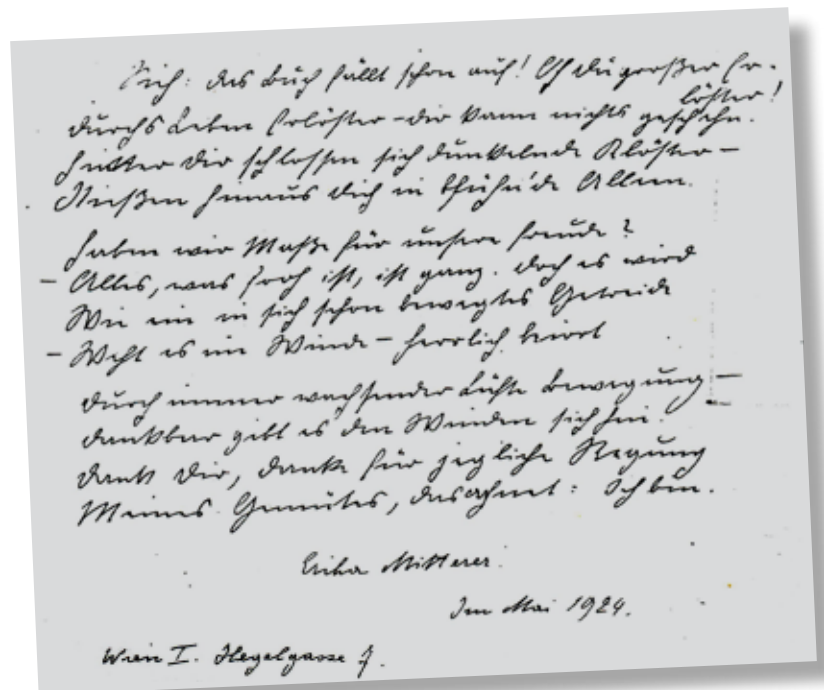 Sieh: das Buch fällt schon auf! Oh du großer Er-
löster!
durchs Leben Erlöster – dir kann nichts geschehn.
Hinter dir schlossen sich dunkelnde Klöster –
Stießen hinaus dich in blühnde Alleen.
Haben wir Maße für unsere Freude?
– Alles, was froh ist, ist ganz. Doch es wird
Wie ein in sich schon bewegtes Getreide
– Weht es im Winde – herrlich beirrt
durch immer wachsender Lüfte Bewegung –
dankbar gibt es den Winden sich hin.
Dank Dir, danke für jegliche Regung
Meines Gemütes, das ahnet: Ich bin.
Erika Mitterer.
Im Mai 1924.
Wien I. Hegelgasse 7.